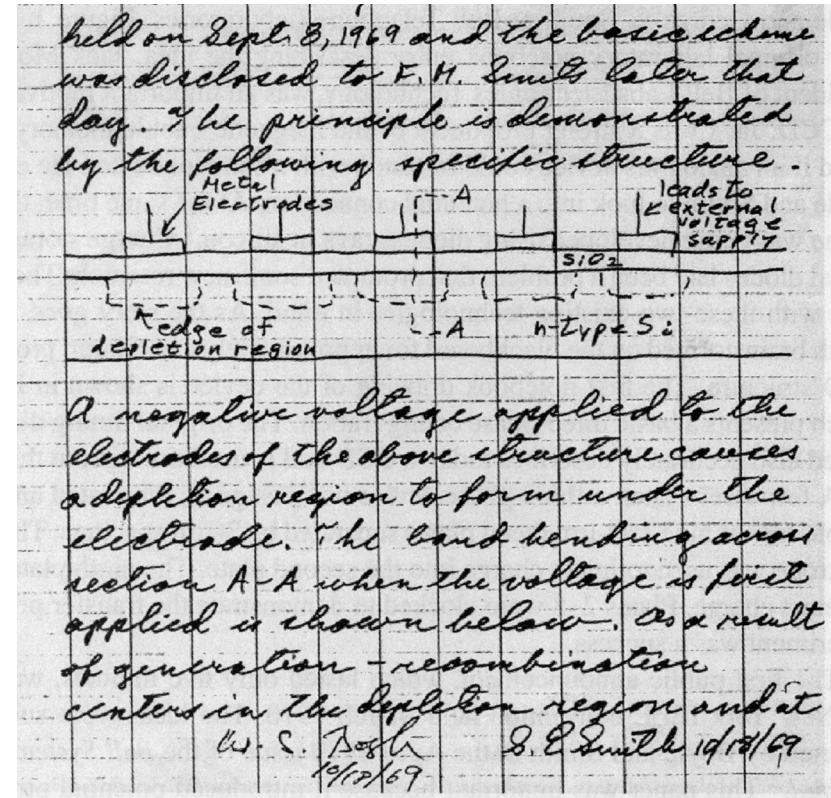 held on Sept. 8, 1969 and the basic scheme
was disclosed to F. M. Smits later that
day. The principle is demonstrated
by the following specific structure
Metal
Electrodes
A
leads to
external
voltage
supply
SiO2
edge of
depletion region
A
n-type Si
A negative voltage applied to the
electrodes of the above structure causes
a depletion region to form under the
electrode. The band bending across
section A-A when the voltage is first
applied is shown below. As a result
of generation - recombination
centers in the depletion region and at
W S Boyle
10/19/69
G. E. Smith 10/18/69